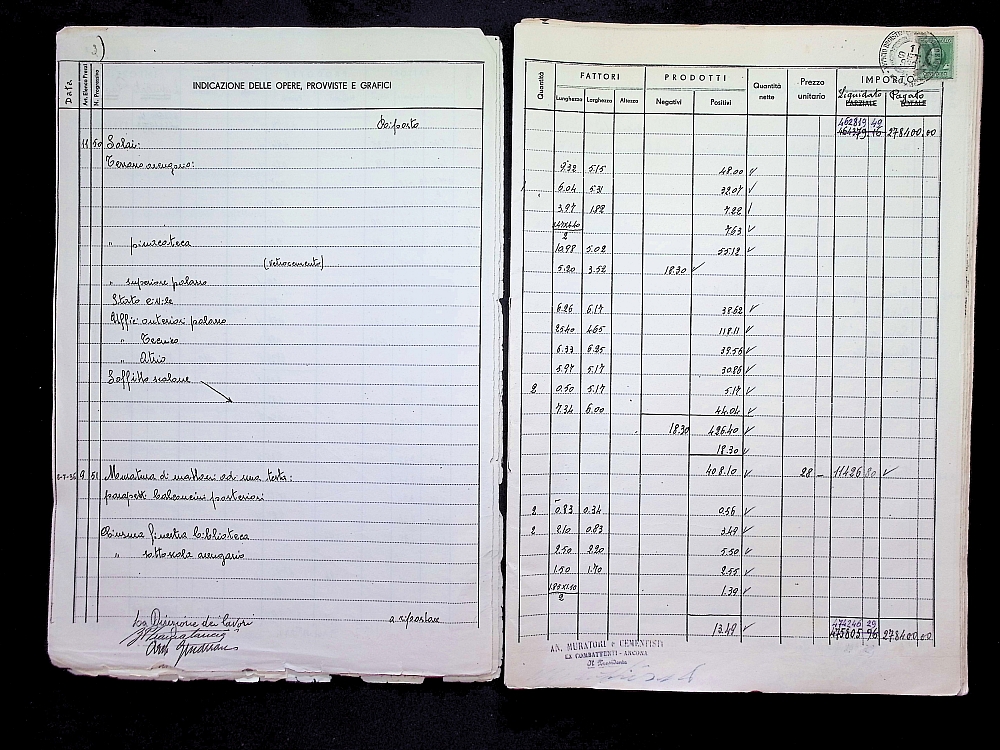 3)
Data
Art. Elenco Prezzi
N. Progressivo
INDICAZIONE DELLE OPERE, PROVVISTE E GRAFICI
Riporto
11 50 Solai:
Terrazzo arengario:
" pinacoteca
(vetrocemento)
" superiore palazzo
Stato civile
Uffici anteriori palazzo
" Tecnico
" Atrio
Soffitto scalone
9 51 Muratura di mattoni ad una testa:
parapetti balconcini posteriori
Chiusura finestra biblioteca
" sottoscala arengario
La Direzione dei lavori
a riportare
Quantità
FATTORI
PRODOTTI
Quantità nette
Prezzo unitario
IMPORTO
Lunghezza Larghezza Altezza
Negativi Positivi
Liquidato Pagato
PARZIALE TOTALE
462819 49
278400.00
9.32 5.15 48.00
6.04 5.31 32.07
3.97 1.82 7.22
7.63
2
10.98 5.02 55.12
5.20 3.52 18.30
6.26 6.17 38.62
25.40 4.65 118.11
6.33 6.25 39.56
5.97 5.17 30.86
2 0.50 5.17 5.17
7.34 6.00 44.04
18.30 426.40
18.30
408.10 28 — 11426 80
2 0.83 0.34 0.56
2 2.10 0.83 3.49
2.50 2.20 5.50
1.50 1.70 2.55
1.39
2
13.49
474246 29
475805 96 278400.00
AN. MURATORI e CEMENTISTI
EX COMBATTENTI - ANCONA
Il Presidente